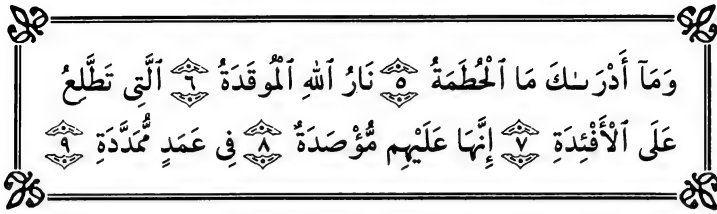 وَمَآ أَدْرَىٰكَ مَا ٱلْحُطَمَةُ ٥ نَارُ ٱللهِ ٱلْمُوقَدَةُ ٦ ٱلَّتِى تَطَّلِعُ
عَلَى ٱلْأَفْئِدَةِ ٧ إِنَّهَا عَلَيْهِم مُّؤْصَدَةٌ ٨ فِى عَمَدٍ مُّمَدَّدَةٍ ٩